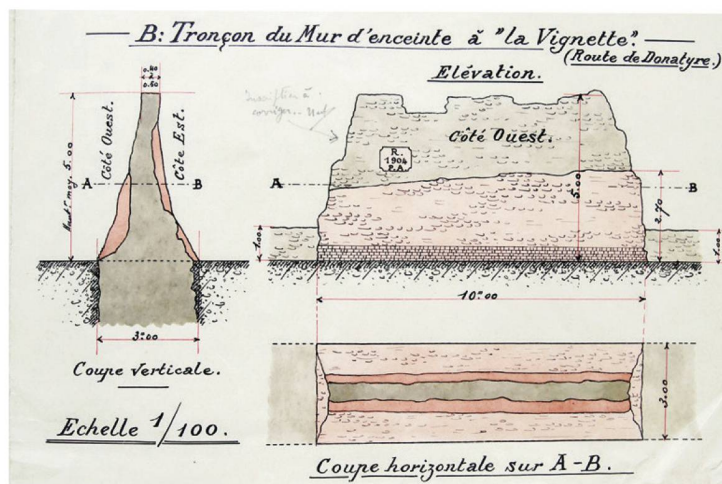 B: Tronçon du Mur d'enceinte à "la Vignette".
(Route de Donatyre.)
Elévation.
0.40
à
0.60
Côté Ouest.
Côté Est.
A
B
Haut.r moy. 5.00
3m00
Coupe verticale.
Echelle 1/100.
Inscription à
corriger
Côté Ouest.
R.
1904
P.A
A
B
1.00
5.00
2.70
1.00
10m00
3.00
Coupe horizontale sur A-B.